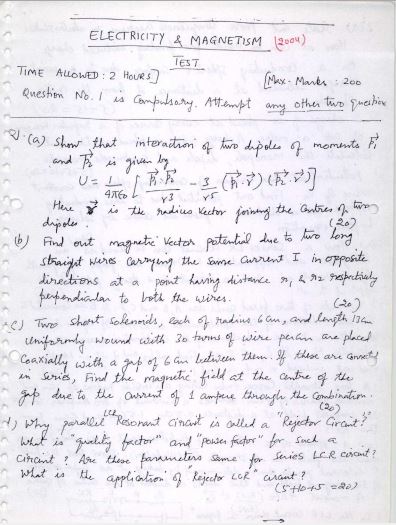 ELECTRICITY & MAGNETISM (2004)
TEST
TIME ALLOWED: 2 HOURS] [Max. Marks: 200
Question No. 1 is Compulsory. Attempt any other two Question
Q1. (a) Show that interaction of two dipoles of moments P⃗1
and P⃗2 is given by
U = 1/4πε0 [ P⃗1·P⃗2/r3 − 3/r5 (P⃗1·r⃗) (P⃗2·r⃗) ]
Here r⃗ is the radius vector joining the centres of two
dipoles. (20)
(b) Find out magnetic vector potential due to two long
straight wires carrying the same current I in opposite
directions at a point having distance r1 & r2 respectively
perpendicular to both the wires. (20)
(c) Two short solenoids, each of radius 6 cm, and length 13 cm
uniformly wound with 30 turns of wire per cm are placed
coaxially with a gap of 6 cm between them. If these are connected
in series, Find the magnetic field at the centre of the
gap due to the current of 1 ampere through the combination.
(20)
d) Why parallel LCR Resonant circuit is called a "Rejector Circuit?"
What is "quality factor" and "power factor" for such a
circuit? Are these parameters same for series LCR circuit?
What is the application of "Rejector LCR" circuit?
(5+10+5=20)